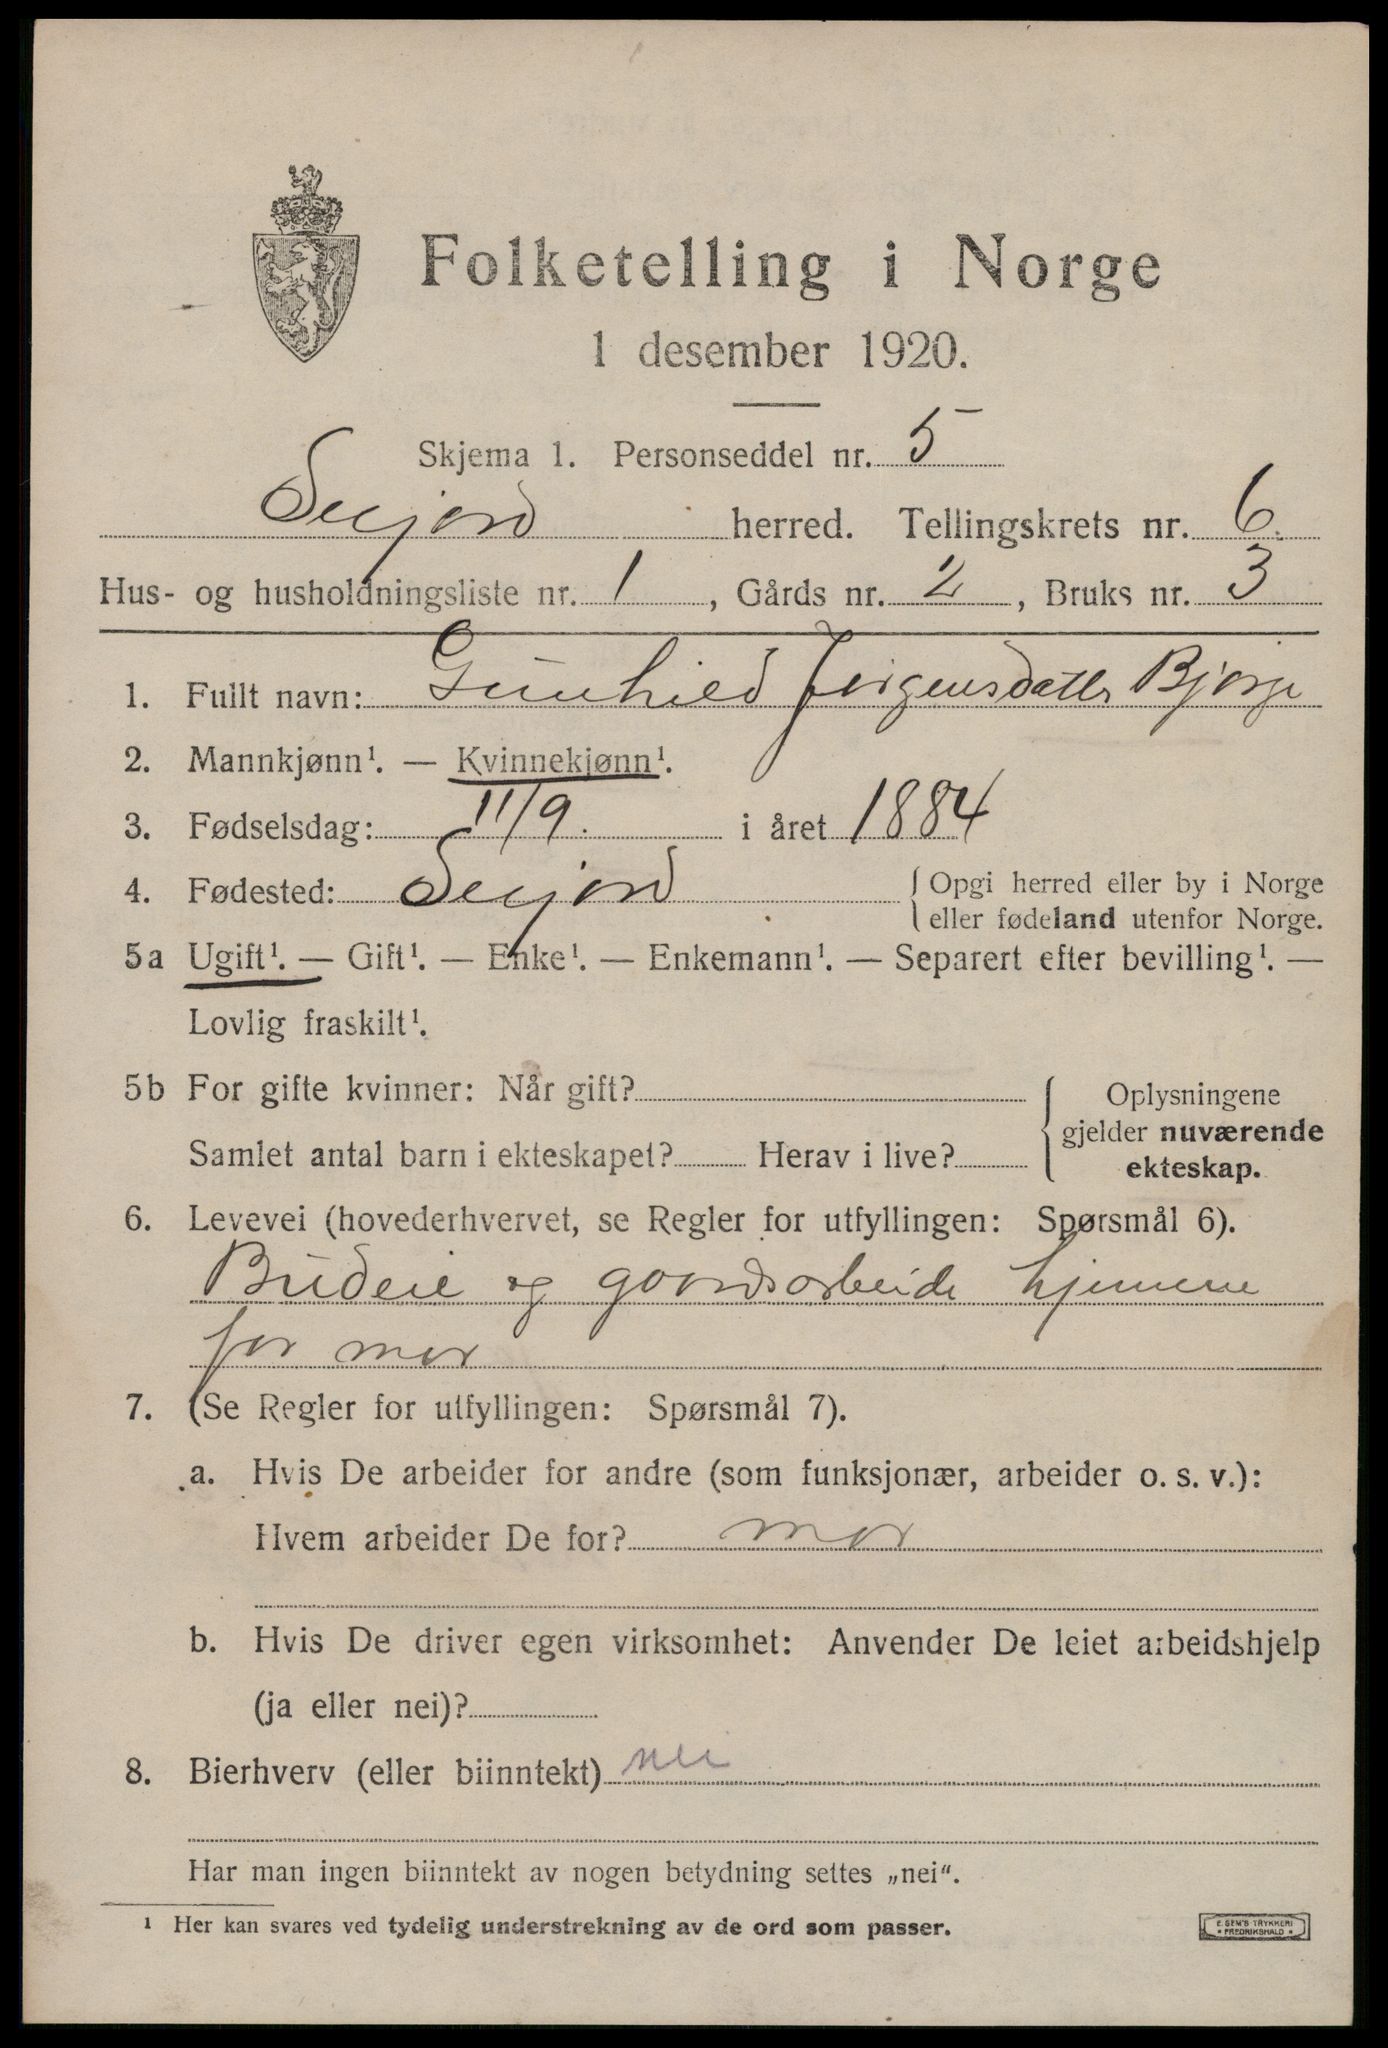 Folketelling i Norge
1 desember 1920.
Skjema 1. Personseddel nr. 5
Seljord herred. Tellingskrets nr. 6.
Hus- og husholdningsliste nr. 1, Gårds nr. 2, Bruks nr. 3
1. Fullt navn: Gunhild Jørgensdatter Bjørge
2. Mannkjønn¹. — Kvinnekjønn¹.
3. Fødselsdag: 11/9. i året 1884
4. Fødested: Seljord {Opgi herred eller by i Norge
eller fødeland utenfor Norge.
5a Ugift¹. — Gift¹. — Enke¹. — Enkemann¹. — Separert efter bevilling¹. —
Lovlig fraskilt¹.
5b For gifte kvinner: Når gift? { Oplysningene
gjelder nuværende
Samlet antal barn i ekteskapet? Herav i live?
ekteskap.
6. Levevei (hovederhvervet, se Regler for utfyllingen: Spørsmål 6).
Budeie og gaardsarbeide hjemme
for mor
7. (Se Regler for utfyllingen: Spørsmål 7).
a. Hvis De arbeider for andre (som funksjonær, arbeider o. s. v.):
Hvem arbeider De for? mor
b. Hvis De driver egen virksomhet: Anvender De leiet arbeidshjelp
(ja eller nei)?
8. Bierhverv (eller biinntekt) nei
Har man ingen biinntekt av nogen betydning settes „nei“.
¹ Her kan svares ved tydelig understrekning av de ord som passer.
E. SEM'S TRYKKERI
* FREDRIKSHALD *